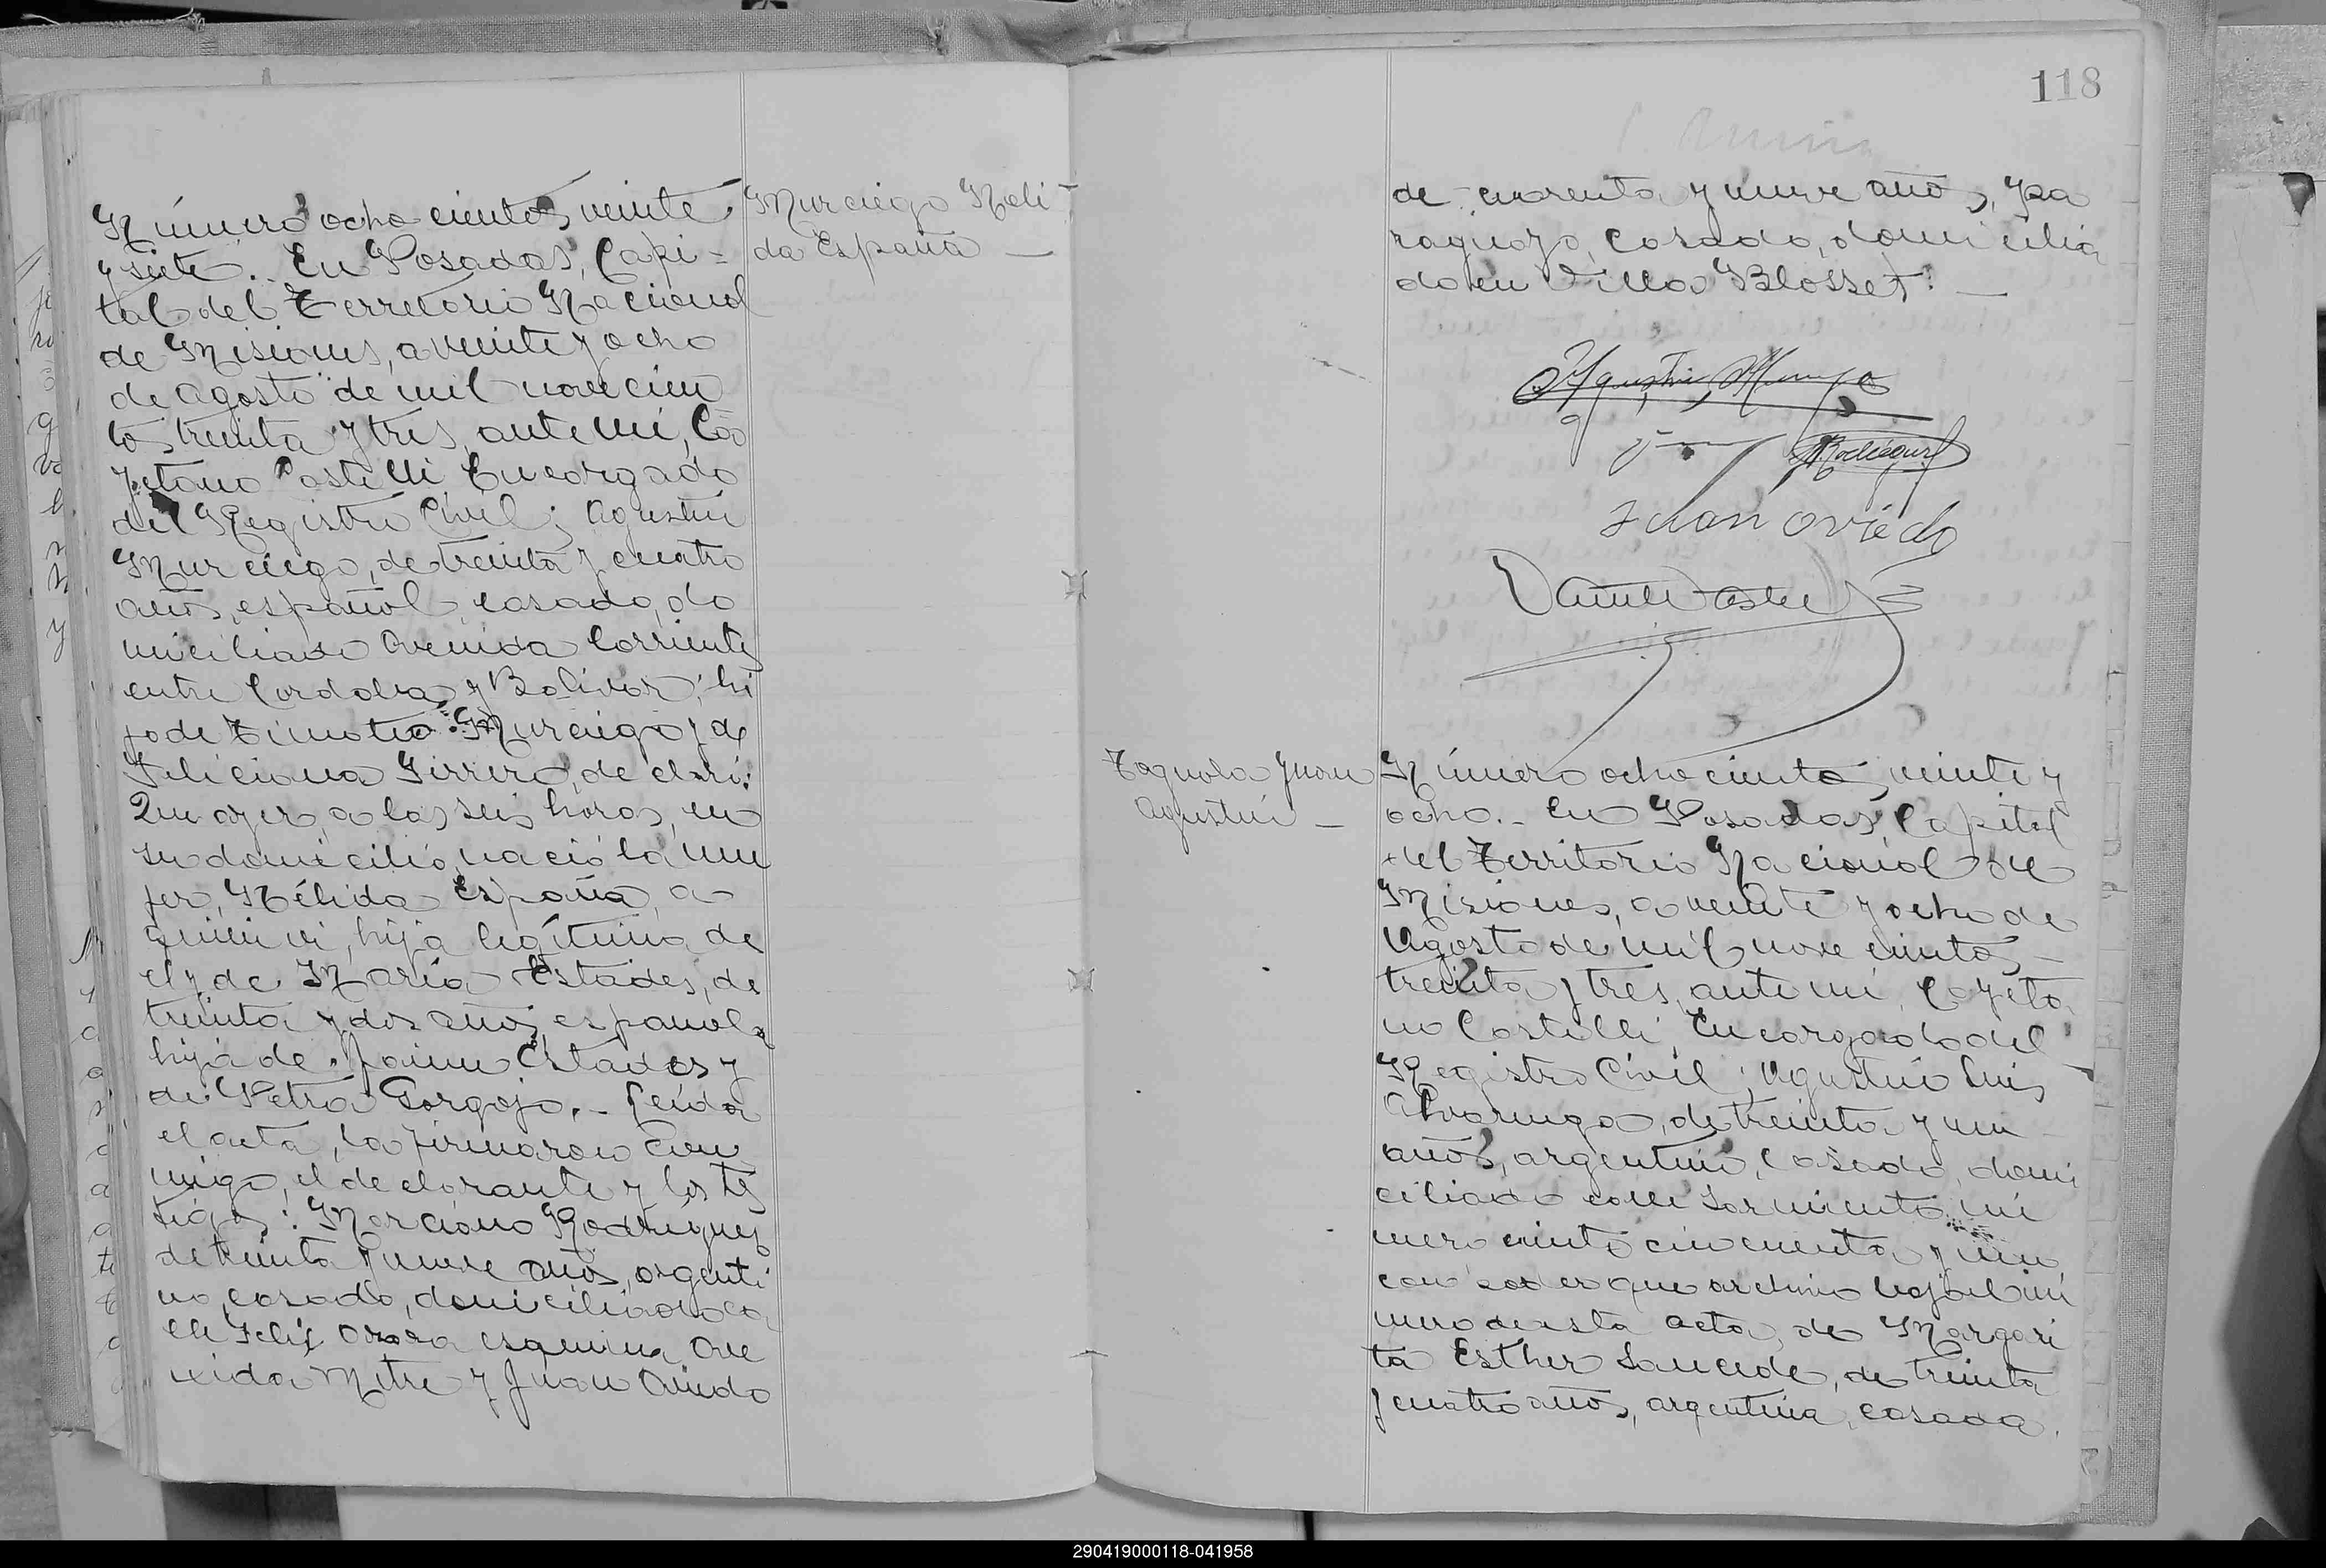 Murciego Neli
da España —
Número ochocientos veinte
y siete. En Posadas, Capi=
tal del Terretorio Nacional
de Misiones, a veinte y ocho
de agosto de mil novecien
tos treinta y tres, ante mí, Ca
yetano Castelli Encargado
del Registro Civil; Agustín
Murciego, de treinta y cuatro
años, español, casado, do
miciliado Avenida Corrientes
entre Cordoba y Bolivar, hi
jo de Timoteo Murciego y de
Feliciana, declaró:
Que ayer, a las seis horas, en
su domicilio, nació la mu
jer, Nélida España, a
quien vi, hija legítima de
el y de María Estades, de
treinta y dos años, española
hija de Jaime Estades y
de Petra Gorgojo.- Leída
el acta, la firmaron con
migo, el declarante y los tes
tigos: Marciano Rodríguez
de treinta y nueve años, argenti
no, casado, domiciliado ca
lle Felix Azara esquina Ave
nida Mitre y Juan Oviedo
118
de cuarenta y nueve años, pa
raguayo, casado, domicilia
do en Villa Blosset. —
Agustin Murciego
Juan Oviedo
Tagnola Juan
Agustín —
Número ochocientos veinte y
ocho.- En Posadas, Capital
del Territorio Nacional de
Misiones, a veinte y ocho de
Agosto de mil novecientos
treinta y tres, ante mí, Cayeta
no Castelli, Encargado del
Registro Civil; Agustín Luis
Alvarenga, de treinta y un
años, argentino, casado, domi
ciliado calle Sarmiento, nú
mero ciento cincuenta y uno
con poder que archivo bajo el nú
mero de esta acta, de Margari
ta Esther Saucede, de treinta
y cuatro años, argentina, casada
290419000118-041958